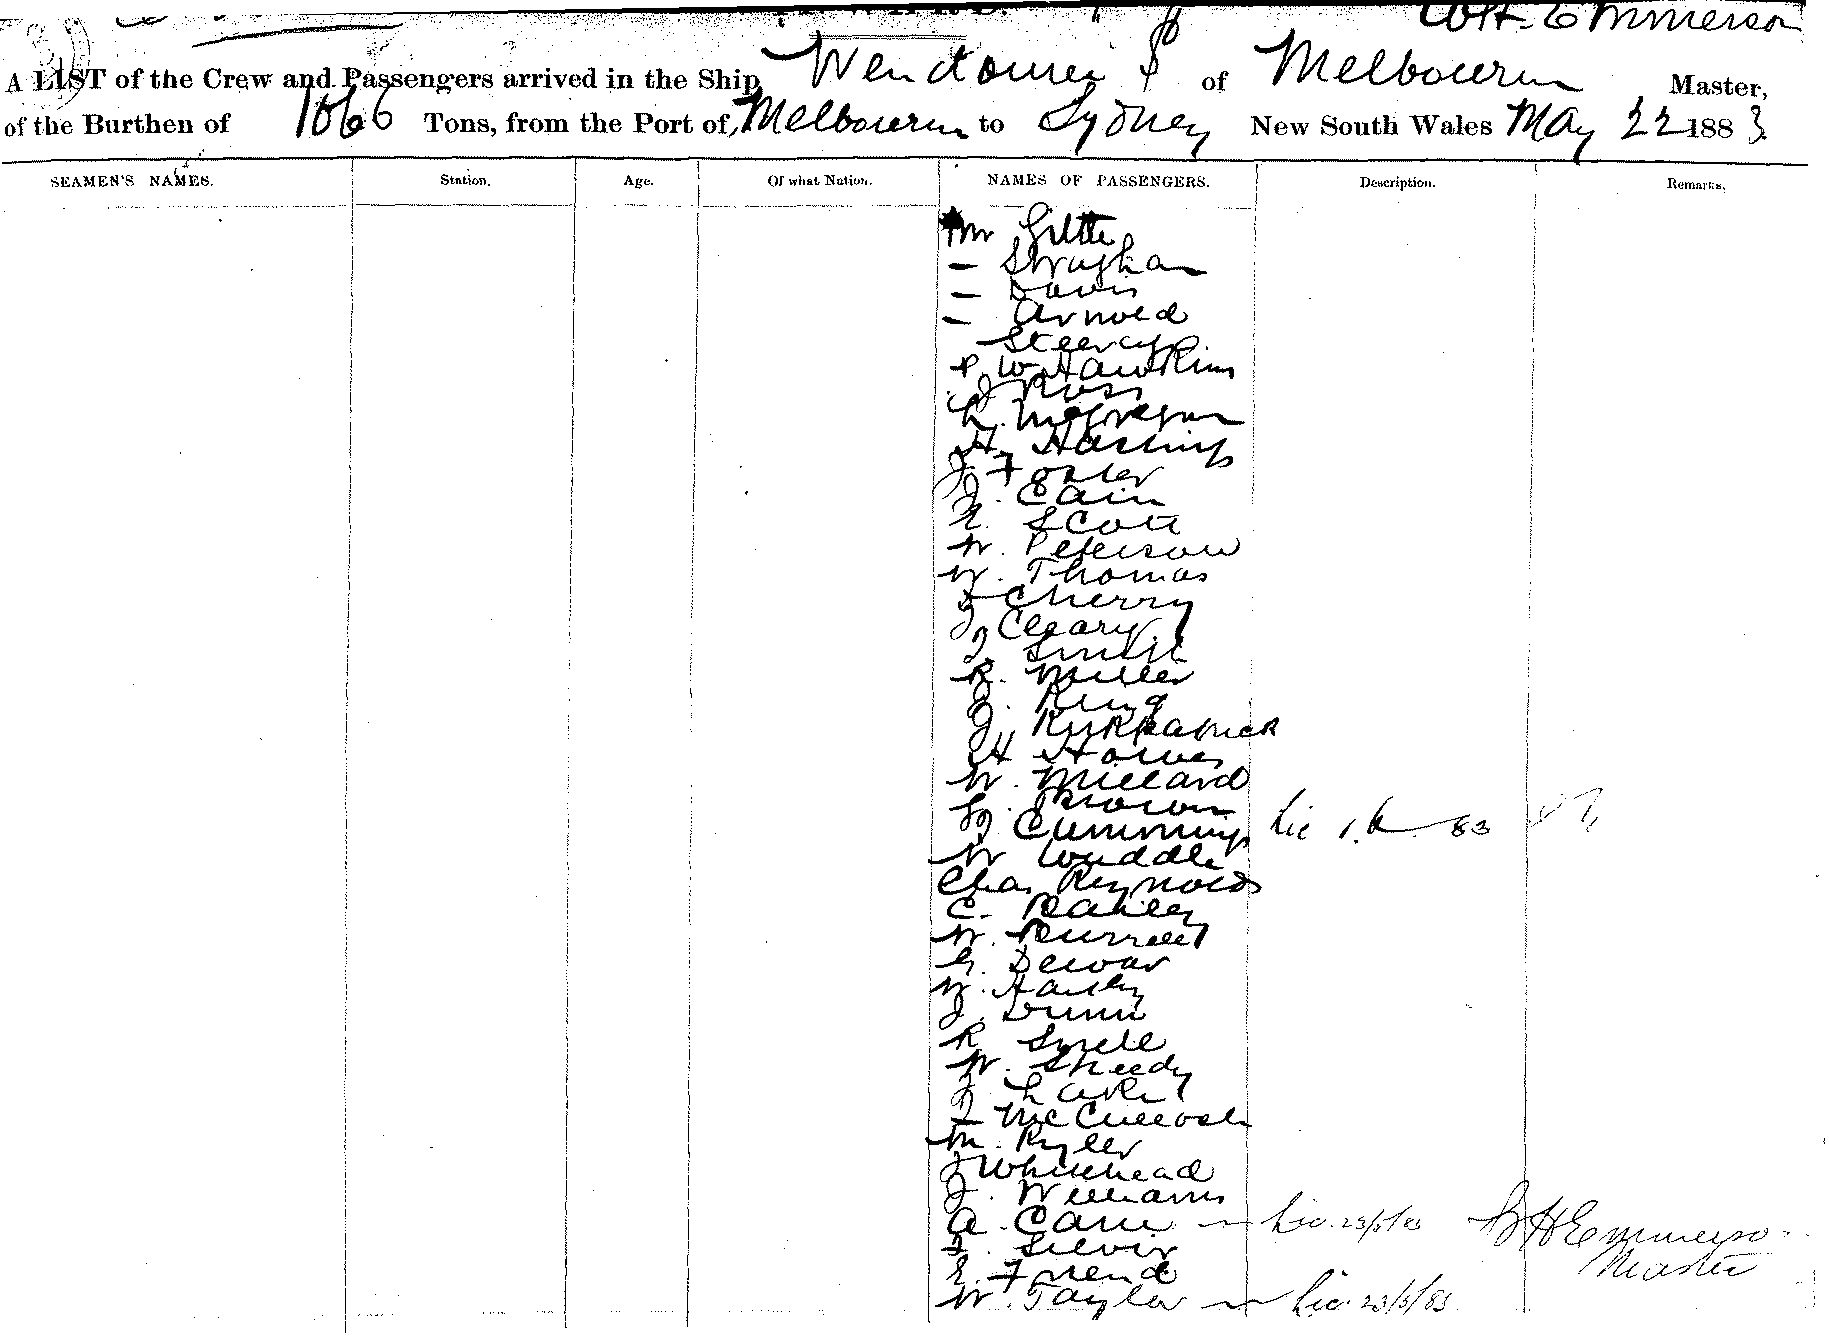 WH Emmerson
A LIST of the Crew and Passengers arrived in the Ship Wendouree S of Melbourne Master,
of the Burthen of 1066 Tons, from the Port of, Melbourne to Sydney New South Wales May 22 1883
SEAMEN'S NAMES. Station. Age. Of what Nation. NAMES OF PASSENGERS. Description. Remarks.
Mr
— Straghan
— Davis
— Arnold
Steerage
P W Hawkins
J Ross
L. McGregor
H. Hastings
J Foster
J. Cain
E. Scott
W. Peterson
W. Thomas
J Cherry
J Cleary
J. Smith
R. Miller
J. King
J. Kirkpatrick
H Howes
W. Millard
G. Brown
J Cummings Lic 83
W Waddle
Chas Reynolds
C. Bailey
W. Burrell
G. Dewar
W. Hanley
J. Dunn
R Snell
W. Sheedy
J Lake
J McCullosh
M. Ryller
J Whitehead
J. Williams
A. Cane — Lic. 23/5/83 WH Emmerson
F. Silvir Master
E. Friend
W. Taylor — Lic. 23/5/83